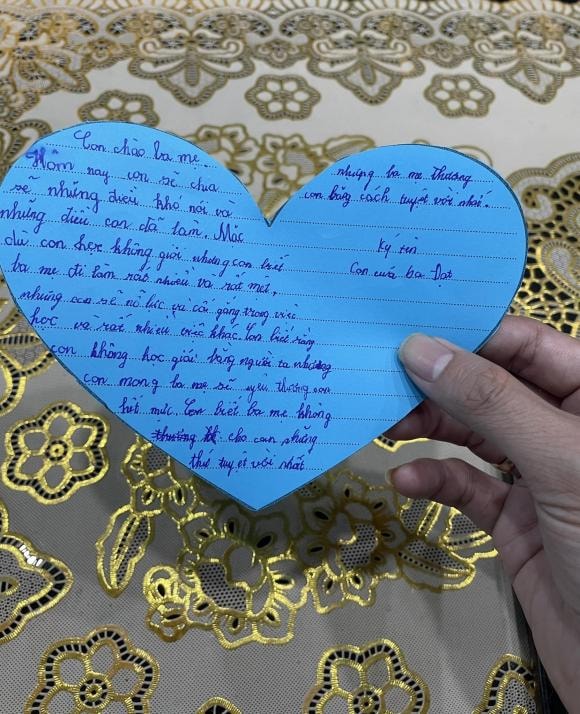 Con chào ba mẹ
Hôm nay con sẽ chia
sẽ những điều khó nói và
những điều con đã làm. Mặc
dù con học không giỏi nhưng con biết
ba mẹ đi làm rất nhiều và rất mệt,
nhưng con sẽ nỗ lực và cố gắng trong việc
học và rất nhiều việc khác. Con biết rằng
con không học giỏi bằng người ta nhưng
con mong ba mẹ sẽ yêu thương con
hết mức. Con biết ba mẹ không
thường cho con những
thứ tuyệt vời nhất
nhưng ba mẹ thương
con bằng cách tuyệt vời nhất.
Ký tên
Con của ba Đạt